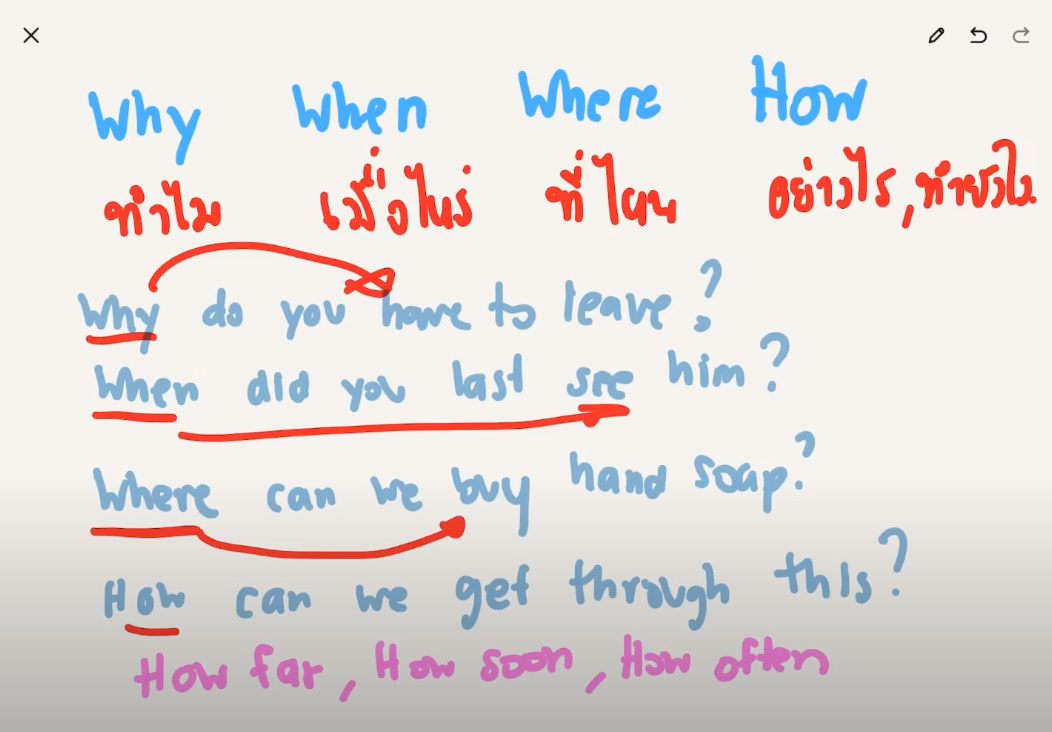 Why When Where How
ทำไม เมื่อไหร่ ที่ไหน อย่างไร, ทำยังไง
Why do you have to leave?
When did you last see him?
Where can we buy hand soap?
How can we get through this?
How far, How soon, How often